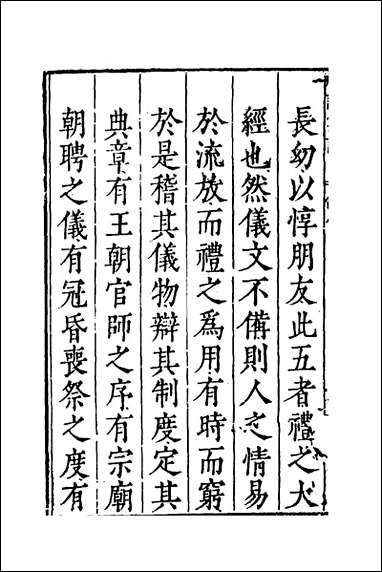 長幼以惇朋友此五者禮之大
經也然儀文不備則人之情易
於流放而禮之爲用有時而窮
於是稽其儀物辯其制度定其
典章有王朝官師之序有宗廟
朝聘之儀有冠昏喪祭之度有